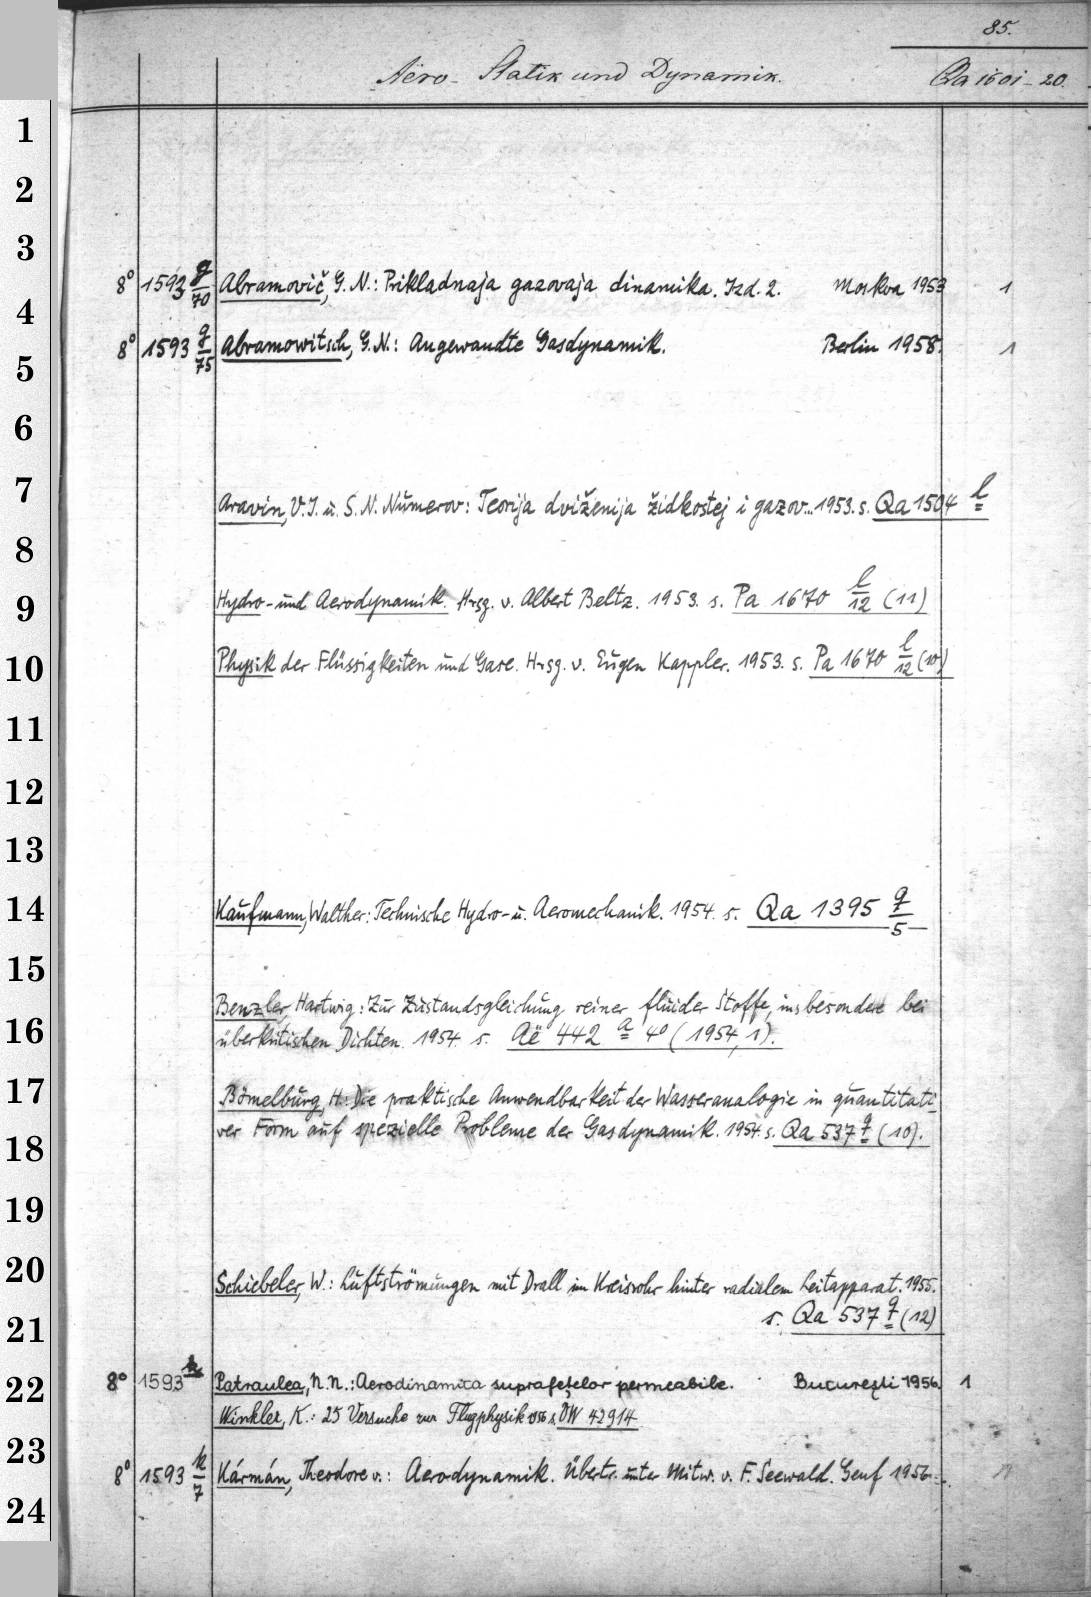 85.
Aëro- Statik und Dynamik. Qa 1601-20.
1
2
3
8° 1593 g/70 Abramovič, G. N.: Prikladnaja gazovaja dinamika. Izd. 2. Moskva 1953 1
4
8° 1593 g/75 Abramowitsch, G. N.: Angewandte Gasdynamik. Berlin 1958. 1
5
6
7
Aravin, V. I. u. S. N. Numerov: Teorija dviženija židkostej i gazov... 1953. s. Qa 1504 l
8
9
Hydro- und Aerodynamik. Hrsg. v. Albert Beltz. 1953. s. Pa 1670 l/12 (11)
10
Physik der Flüssigkeiten und Gase. Hrsg. v. Eugen Kappler. 1953. s. Pa 1670 l/12 (10)
11
12
13
14
Kaufmann, Walther: Technische Hydro- u. Aeromechanik. 1954. s. Qa 1395 g/5
15
Benzler, Hartwig: Zur Zustandsgleichung reiner fluider Stoffe, insbesondere bei
16
überkritischen Dichten. 1954. s. Aë 442 a 4° (1954, 1).
17
Bömelburg, H.: Die praktische Anwendbarkeit der Wasseranalogie in quantitati-
18
ver Form auf spezielle Probleme der Gasdynamik. 1954. s. Qa 537 g (10).
19
20
Schiebeler, W.: Luftströmungen mit Drall im Kreisrohr hinter radialem Leitapparat. 1955.
21
s. Qa 537 g (12)
22
8° 1593 k Patraulea, N. N.: Aerodinamica suprafeţelor permeabile. Bucureşti 1956. 1
Winkler, K.: 25 Versuche zur Flugphysik 1956 s. ÖW 42914
23
8° 1593 k/7 Kármán, Theodore v.: Aerodynamik. Übertr. unter Mitw. v. F. Seewald. Genf 1956. 1
24